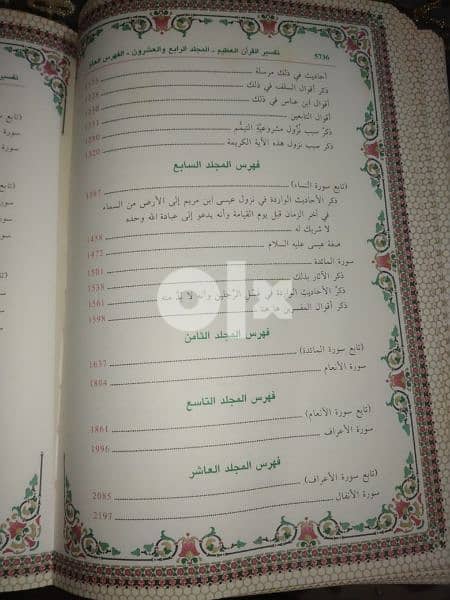 5736 تفسير القرآن العظيم - المجلد الرابع والعشرون - الفهرس العام
أحاديث في ذلك مرسلة
ذكر أقوال السلف في ذلك
أقوال ابن عباس في ذلك
أقوال التابعين
ذكر سبب نزول مشروعية التيمم
ذكر سبب نزول هذه الآية الكريمة 1320
فهرس المجلد السابع
(تابع سورة النساء) 1397
ذكر الأحاديث الواردة في نزول عيسى ابن مريم إلى الأرض من السماء
في آخر الزمان قبل يوم القيامة وأنه يدعو إلى عبادة الله وحده
لا شريك له 1458
صفة عيسى عليه السلام 1472
سورة المائدة 1501
ذكر الآثار بذلك 1538
ذكر الأحاديث الواردة في غسل الرجلين وأنه لا بد منه 1561
ذكر أقوال المفسرين ها هنا 1598
olx
فهرس المجلد الثامن
(تابع سورة المائدة) 1637
سورة الأنعام 1804
فهرس المجلد التاسع
(تابع سورة الأنعام) 1861
سورة الأعراف 1996
فهرس المجلد العاشر
(تابع سورة الأعراف) 2085
سورة الأنفال 2197